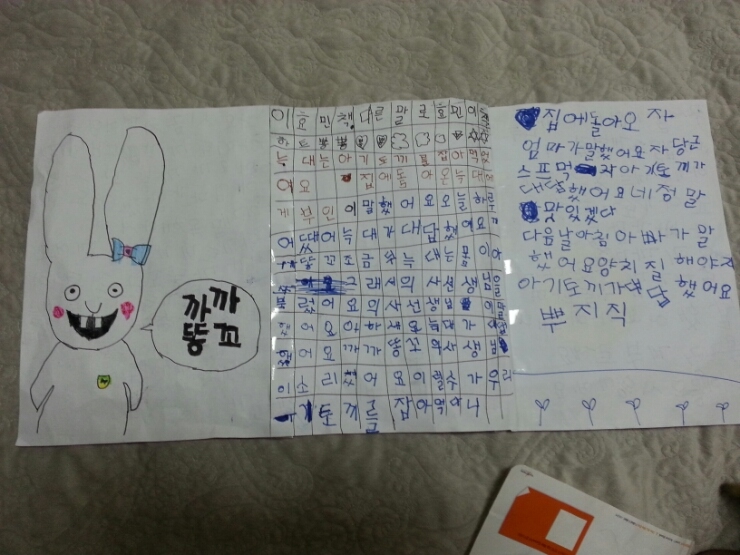 까까
똥꼬
이효민책다른말로효민이
늑대는아기토끼를잡아먹었
어요 집에돌아온늑대에
게부인이말했어요오늘하루
어땠어늑대가대답했어요까
까똥꼬조금후늑대는몸이아
그래서의사선생님을
불렀어요의사선생님이
했어요아하세요늑대가
했어요까까똥꼬의사생님
이소리쳤어요이럴수가우리
아기토끼를잡아먹다니
집에돌아오자
엄마가말했어요자당근
스프먹자아기토끼가
대답했어요네정말
맛있겠다
다음날아침아빠가말
했어요양치질해야지
아기토끼가대답했어요
뿌지직